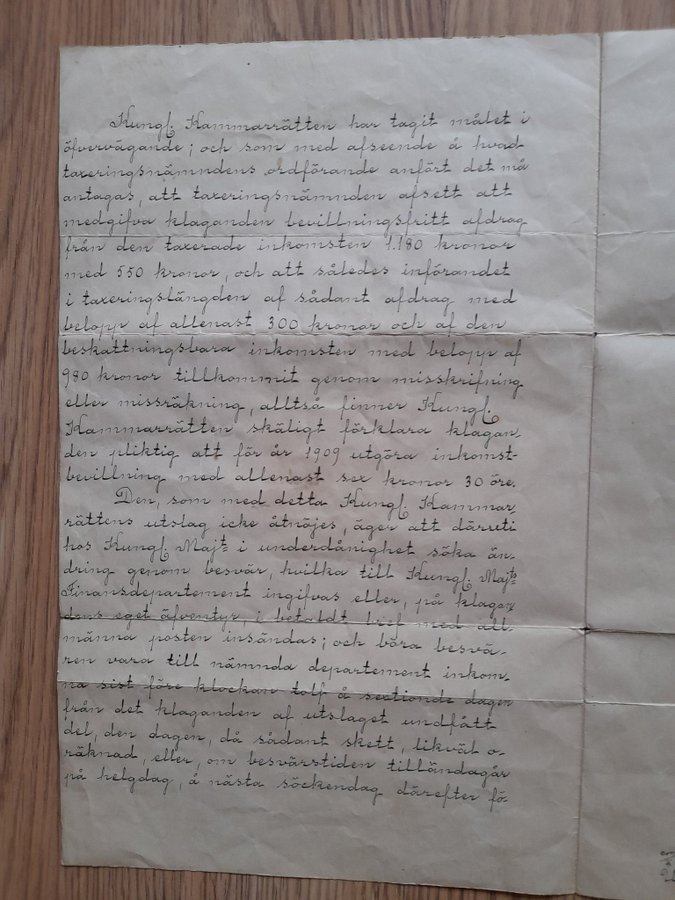 Kungl. Kammarrätten har tagit målet i
öfvervägande; och som med afseende å hvad
taxeringsnämndens ordförande anfört det må
antagas, att taxeringsnämnden afsett att
medgifva klaganden bevillningsfritt afdrag
från den taxerade inkomsten 1.180 kronor
med 550 kronor, och att således införandet
i taxeringslängden af sådant afdrag med
belopp af allenast 300 kronor och af den
beskattningsbara inkomsten med belopp af
980 kronor tillkommit genom misskrifning
eller missräkning, alltså finner Kungl.
Kammarrätten skäligt förklara klagan-
den pliktig att för år 1909 utgöra inkomst-
bevillning med allenast sex kronor 30 öre.
Den, som med detta Kungl. Kammar
rättens utslag icke åtnöjes, äger att däruti
hos Kungl. Majts i underdånighet söka än-
dring genom besvär, hvilka till Kungl. Majts
Finansdepartement ingifvas eller, på klagan-
dens eget äfventyr, i betaldt bref med all-
männa posten insändas; och böra besvä-
ren vara till nämnda departement inkom-
na sist före klockan tolf å sextionde dagen
från det klaganden af utslaget undfått
del, den dagen, då sådant skett, likväl o-
räknad, eller, om besvärstiden tilländagår
på helgdag, å nästa söckendag därefter fö-